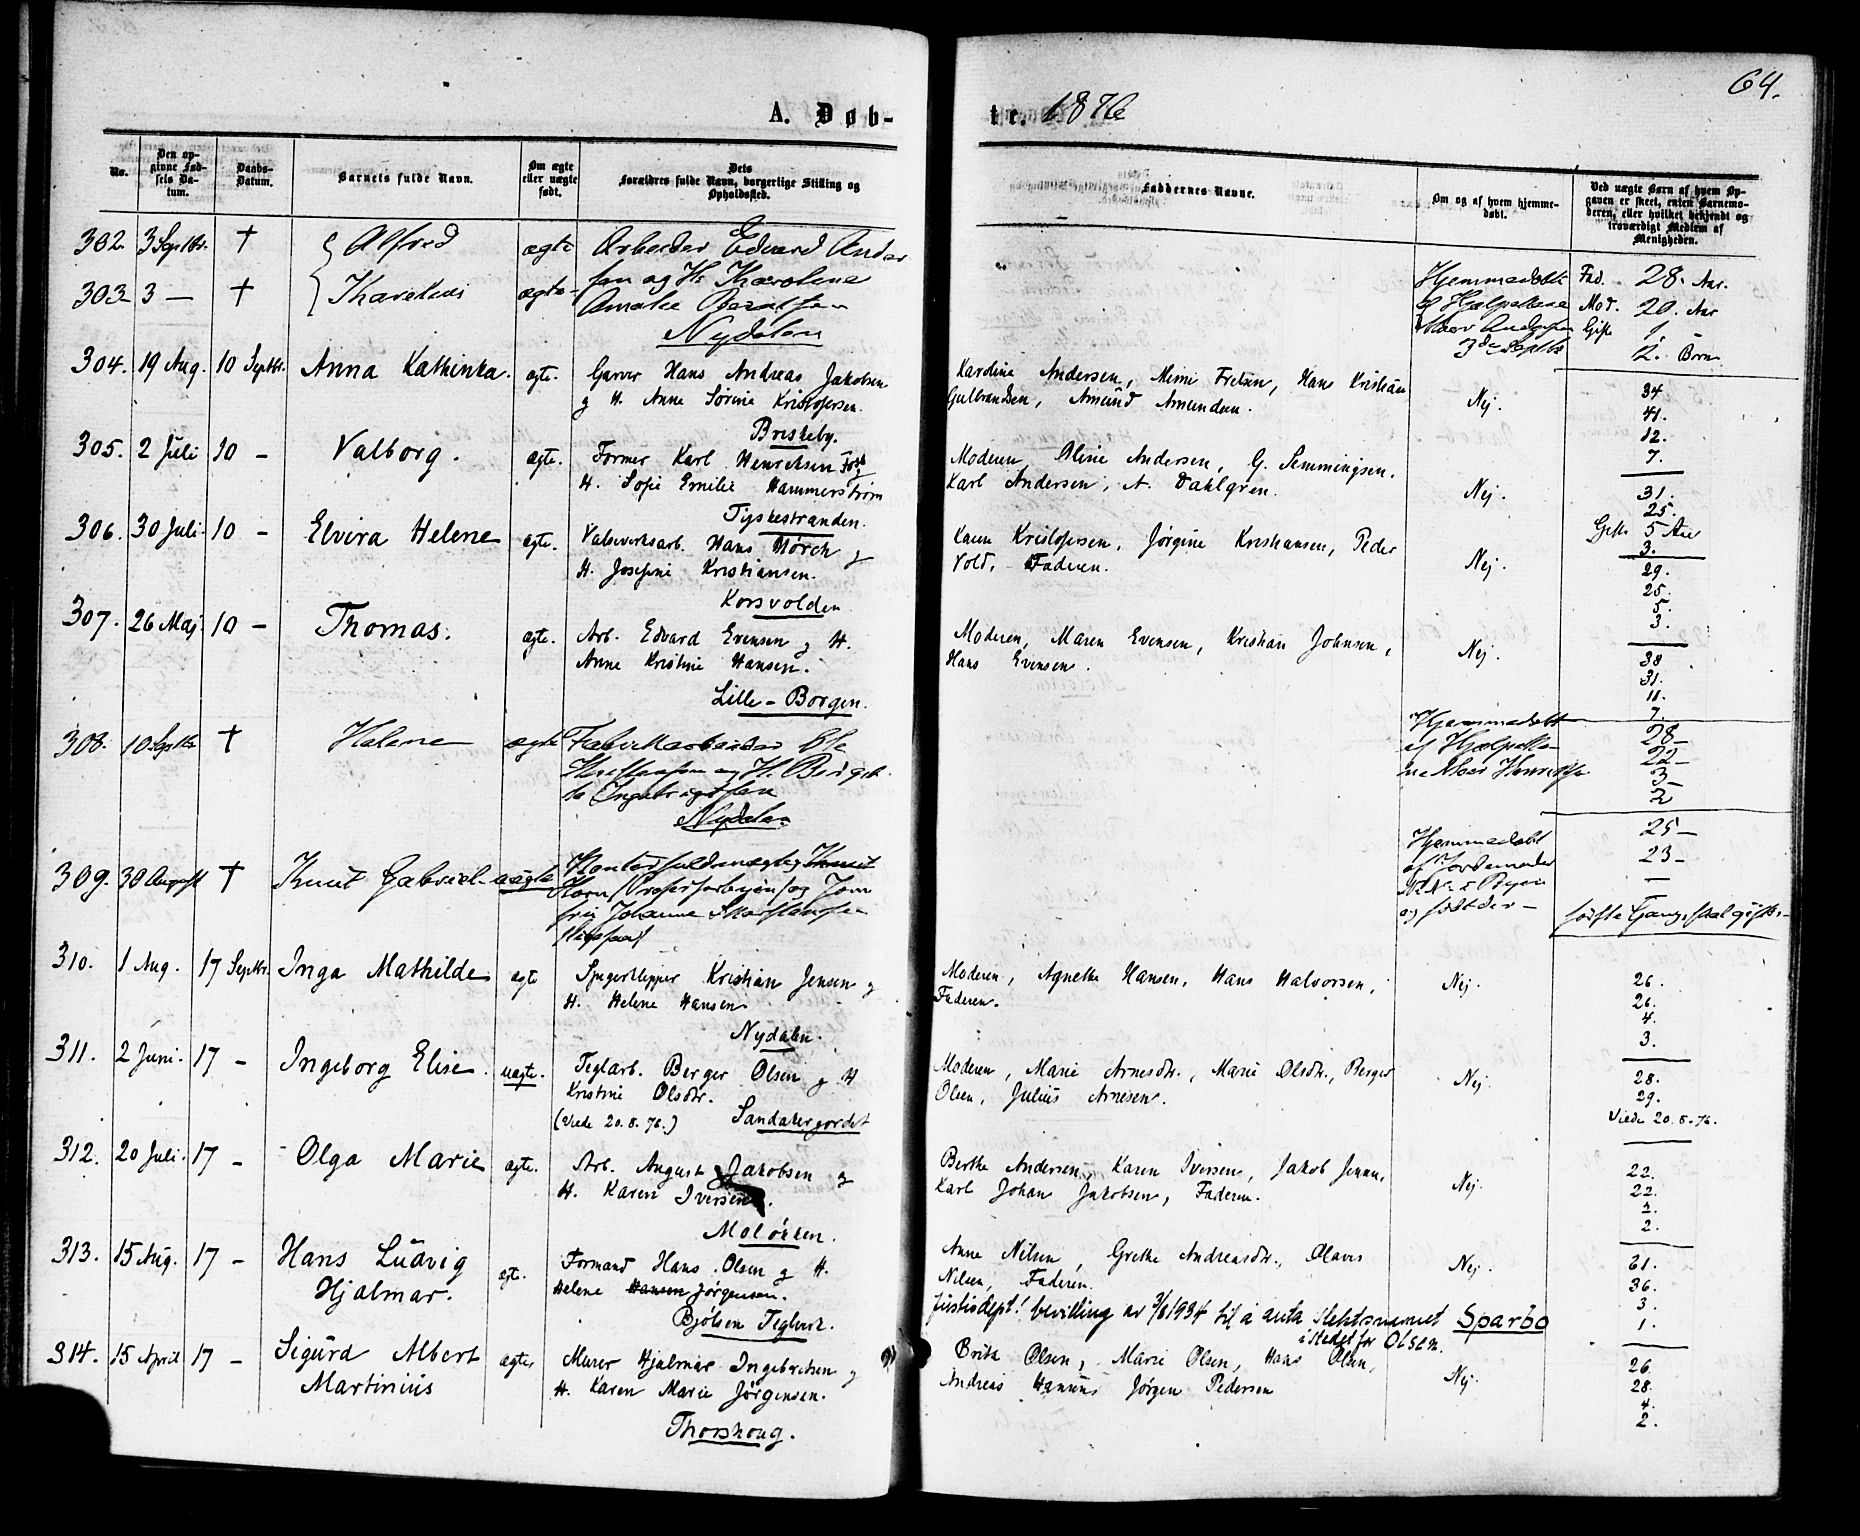 64.
A. Døb-
te. 1876
No.
Den opgivne Fødsels Datum.
Daabs-Datum.
Barnets fulde Navn.
Om ægte eller uægte født.
Dets Forældres fulde Navn, borgerlige Stilling og Opholdssted.
Faddernes Navne.
Om og af hvem hjemmedøbt.
Ved uægte Børn af hvem Opgaven er skeet, enten Barnemoderen, eller hvilket bekjendt og troværdigt Medlem af Menigheden.
302. 3 Septbr. † Alfred ægte Arbeider Edvard Ander
303 3 — † ægte sen og H. Karoline
Amalie
Nydalen
Hjemmedøbt
af
3de Septbr
Fad. 28. Aar.
Mod. 20. Aar
Gift 1
2. Børn
304. 19 Aug. 10 Septbr. Anna Kathinka. ægte. Garver Hans Andreas Jakobsen
g H. Anne Sørine Kristofersen.
Briskeby.
Karoline Andersen, Mimi Fretsen, Hans Kristian
Gulbrandsen, Amund Amundsen. Nej.
34
41.
12.
7.
305. 2 Juli 10 – Valborg. ægte. Former Karl Henriksen og
H. Sofie Emilie Hammerstrøm
Tyskestranden.
Moderen, Oline Andersen, G. Semmingsen.
Karl Andersen, A. Dahlgren. Nej.
31.
25.
Gift 5 Aar
3.
306. 30 Juli 10 – Elvira Helene ægte. Valseverksarb. Hans Mørch g
H. Josefine Kristiansen.
Korsvolden
Karen Kristofersen, Jørgine Kristiansen, Peder
Vold, Faderen. Nej.
29.
25.
5.
3.
307. 26 Maj. 10 – Thomas. ægte. Arb. Edvard Evensen g H.
Anne Kristine Hansen.
Lille-Borgen.
Moderen, Maren Evensen, Kristian Johnsen,
Hans Evensen. Nej.
38
31.
11.
7.
308. 10 Septbr † Helene ægte Fabrikarbeider Ole
Kristiansen og H. Berget
te Ingebrigtsen
Nydalen
Hjemmedøbt
af
28–
22–
3–
2
309. 30 August † Knut Gabriel uægte Kontorfuldmægtig Knut
Horn og Jom
fru Johanne
Hjemmedøbt
af Jordemoder
N. N. i Byen
og født der –
25–
23–
—
første Gang, skal giftes.–
310. 1 Aug. 17 Septbr. Inga Mathilde ægte Spigerklipper Kristian Jensen g
H. Helene Hansen
Nydalen.
Moderen, Agnethe Hansen, Hans Halvorsen,
Faderen. Nej.
26.
26.
4.
3.
311. 2 Juni. 17 – Ingeborg Elise. uægte. Teglarb. Berger Olsen g H
Kristine Olsdtr.
(Viede 20.8.76.) Sandakergordet
Moderen, Marie Arnesdtr., Marie Olsdtr., Berger
Olsen, Julius Arnesen. Nej.
28.
29.
Viede 20.8.76.
312. 20 Juli. 17 – Olga Marie ægte. Arb. August Jakobsen g
H. Karen Iversen.
Moløkken.
Berthe Andersen, Karen Iversen, Jakob Jensen,
Karl Johan Jakobsen, Faderen. Nej.
22.
22.
2.
2.
313. 15 Aug. 17 – Hans Ludvig
Hjalmar. ægte. Formand Hans Olsen g H.
Helene Hansen Jørgensen.
Bjølsen Teglverk.
Anne Nilsen, Grethe Andreasdtr., Olaves
Nilsen, Faderen. Nej.
Justisdept! bevilling av 3/8 1934 til å anta slektsnavnet Sparbo
i stedet for Olsen.
61.
36.
3.
1.
314. 15 April 17 – Sigurd Albert
Martinius ægte, Murer Hjalmar Ingebretsen g
H. Karen Marie Jørgensen.
Thorshoug.
Brita Olsen, Marie Olsen, Hans Olsen,
Andreas Hansens Jørgen Pedersen Nej.
26.
28.
4.
2.